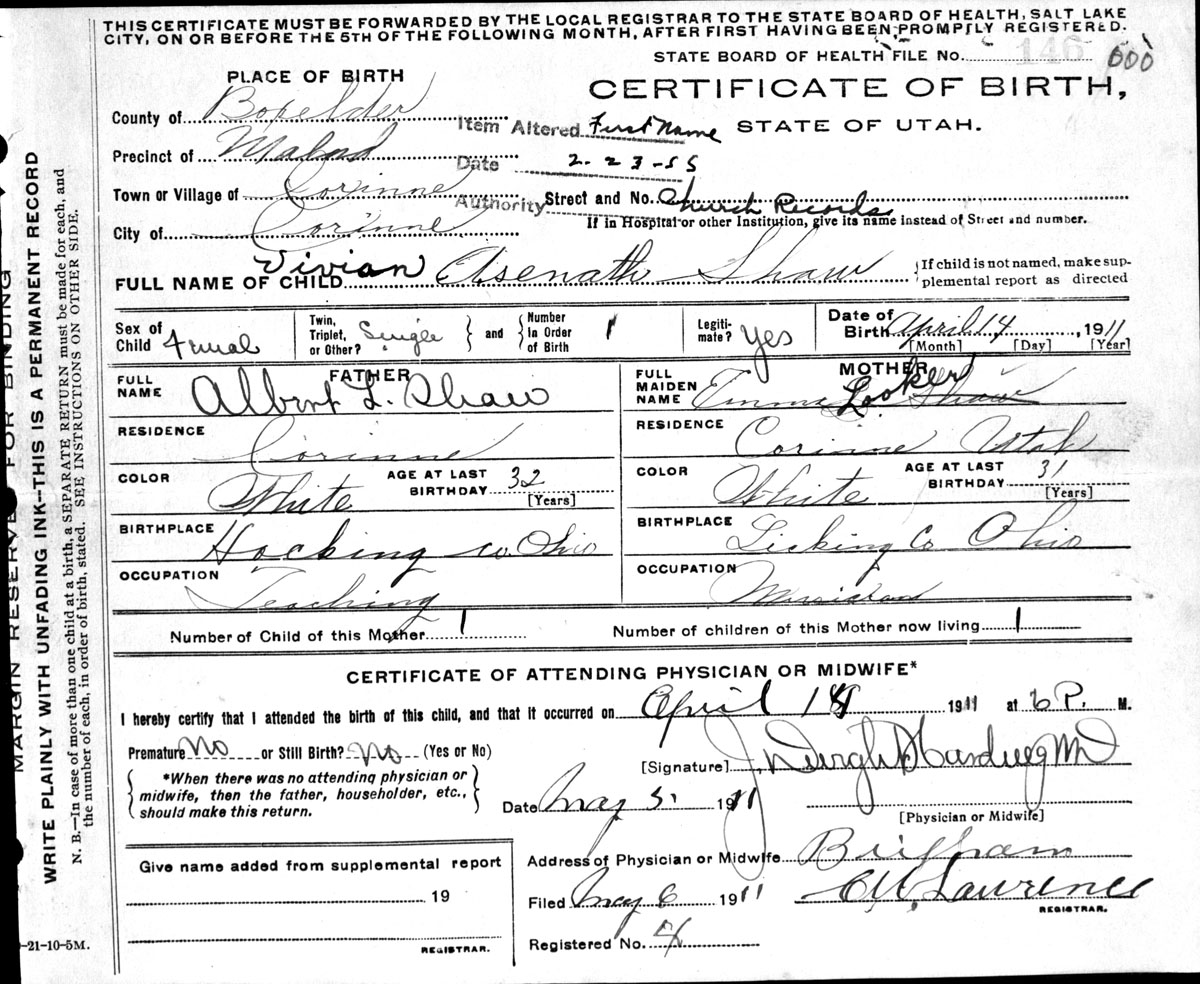 THIS CERTIFICATE MUST BE FORWARDED BY THE LOCAL REGISTRAR TO THE STATE BOARD OF HEALTH, SALT LAKE
CITY, ON OR BEFORE THE 5TH OF THE FOLLOWING MONTH, AFTER FIRST HAVING BEEN PROMPTLY REGISTERED.
STATE BOARD OF HEALTH FILE No. 146 000
PLACE OF BIRTH
CERTIFICATE OF BIRTH,
STATE OF UTAH.
County of Boxelder
Item Altered First Name
Precinct of Malad
Date 2-23-55
Town or Village of Corinne
Authority Church Records
Street and No.
If in Hospital or other Institution, give its name instead of Street and number.
City of Corinne
FULL NAME OF CHILD Vivian Asenath Shaw
If child is not named, make sup-
plemental report as directed
Sex of Child Female
Twin, Triplet, or Other? Single and Number In Order of Birth 1
Legiti-mate? Yes
Date of Birth April 14, 1911
[Month] [Day] [Year]
FATHER
FULL NAME Albert L. Shaw
RESIDENCE Corinne
COLOR White AGE AT LAST BIRTHDAY 32 [Years]
BIRTHPLACE Hocking co. Ohio
OCCUPATION Teaching
MOTHER
FULL MAIDEN NAME Emma Looker Shaw
RESIDENCE Corinne Utah
COLOR White AGE AT LAST BIRTHDAY 31 [Years]
BIRTHPLACE Licking Co Ohio
OCCUPATION Musician
Number of Child of this Mother 1 Number of children of this Mother now living 1
CERTIFICATE OF ATTENDING PHYSICIAN OR MIDWIFE*
I hereby certify that I attended the birth of this child, and that it occurred on April 14 1911 at 6 P. M.
Premature No or Still Birth? No (Yes or No)
*When there was no attending physician or
midwife, then the father, householder, etc.,
should make this return.
[Signature] Harding MD
Date May 5, 1911
[Physician or Midwife]
Give name added from supplemental report
19
REGISTRAR.
Address of Physician or Midwife Brigham
Filed May 6 1911 Lawrence
REGISTRAR.
Registered No.
-21-10-5M.
MARGIN RESERVED FOR BINDING
WRITE PLAINLY WITH UNFADING INK--THIS IS A PERMANENT RECORD
N. B.—In case of more than one child at a birth, a SEPARATE RETURN must be made for each, and
the number of each, in order of birth, stated. SEE INSTRUCTIONS ON OTHER SIDE.